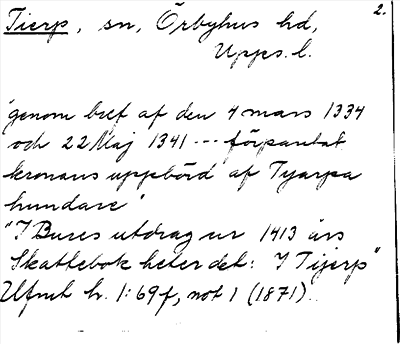 2.
Tierp, sn, Örbyhus hd,
Upps. l.
"genom bref af den 4 mars 1334
och 22 Maj 1341 --- förpantat
kronans uppbörd af Tyarpa
hundare"
"I Bures utdrag ur 1413 års
Skattebok heter det: I Tijerp"
Ufmt h. 1:69 f, not 1 (1871).